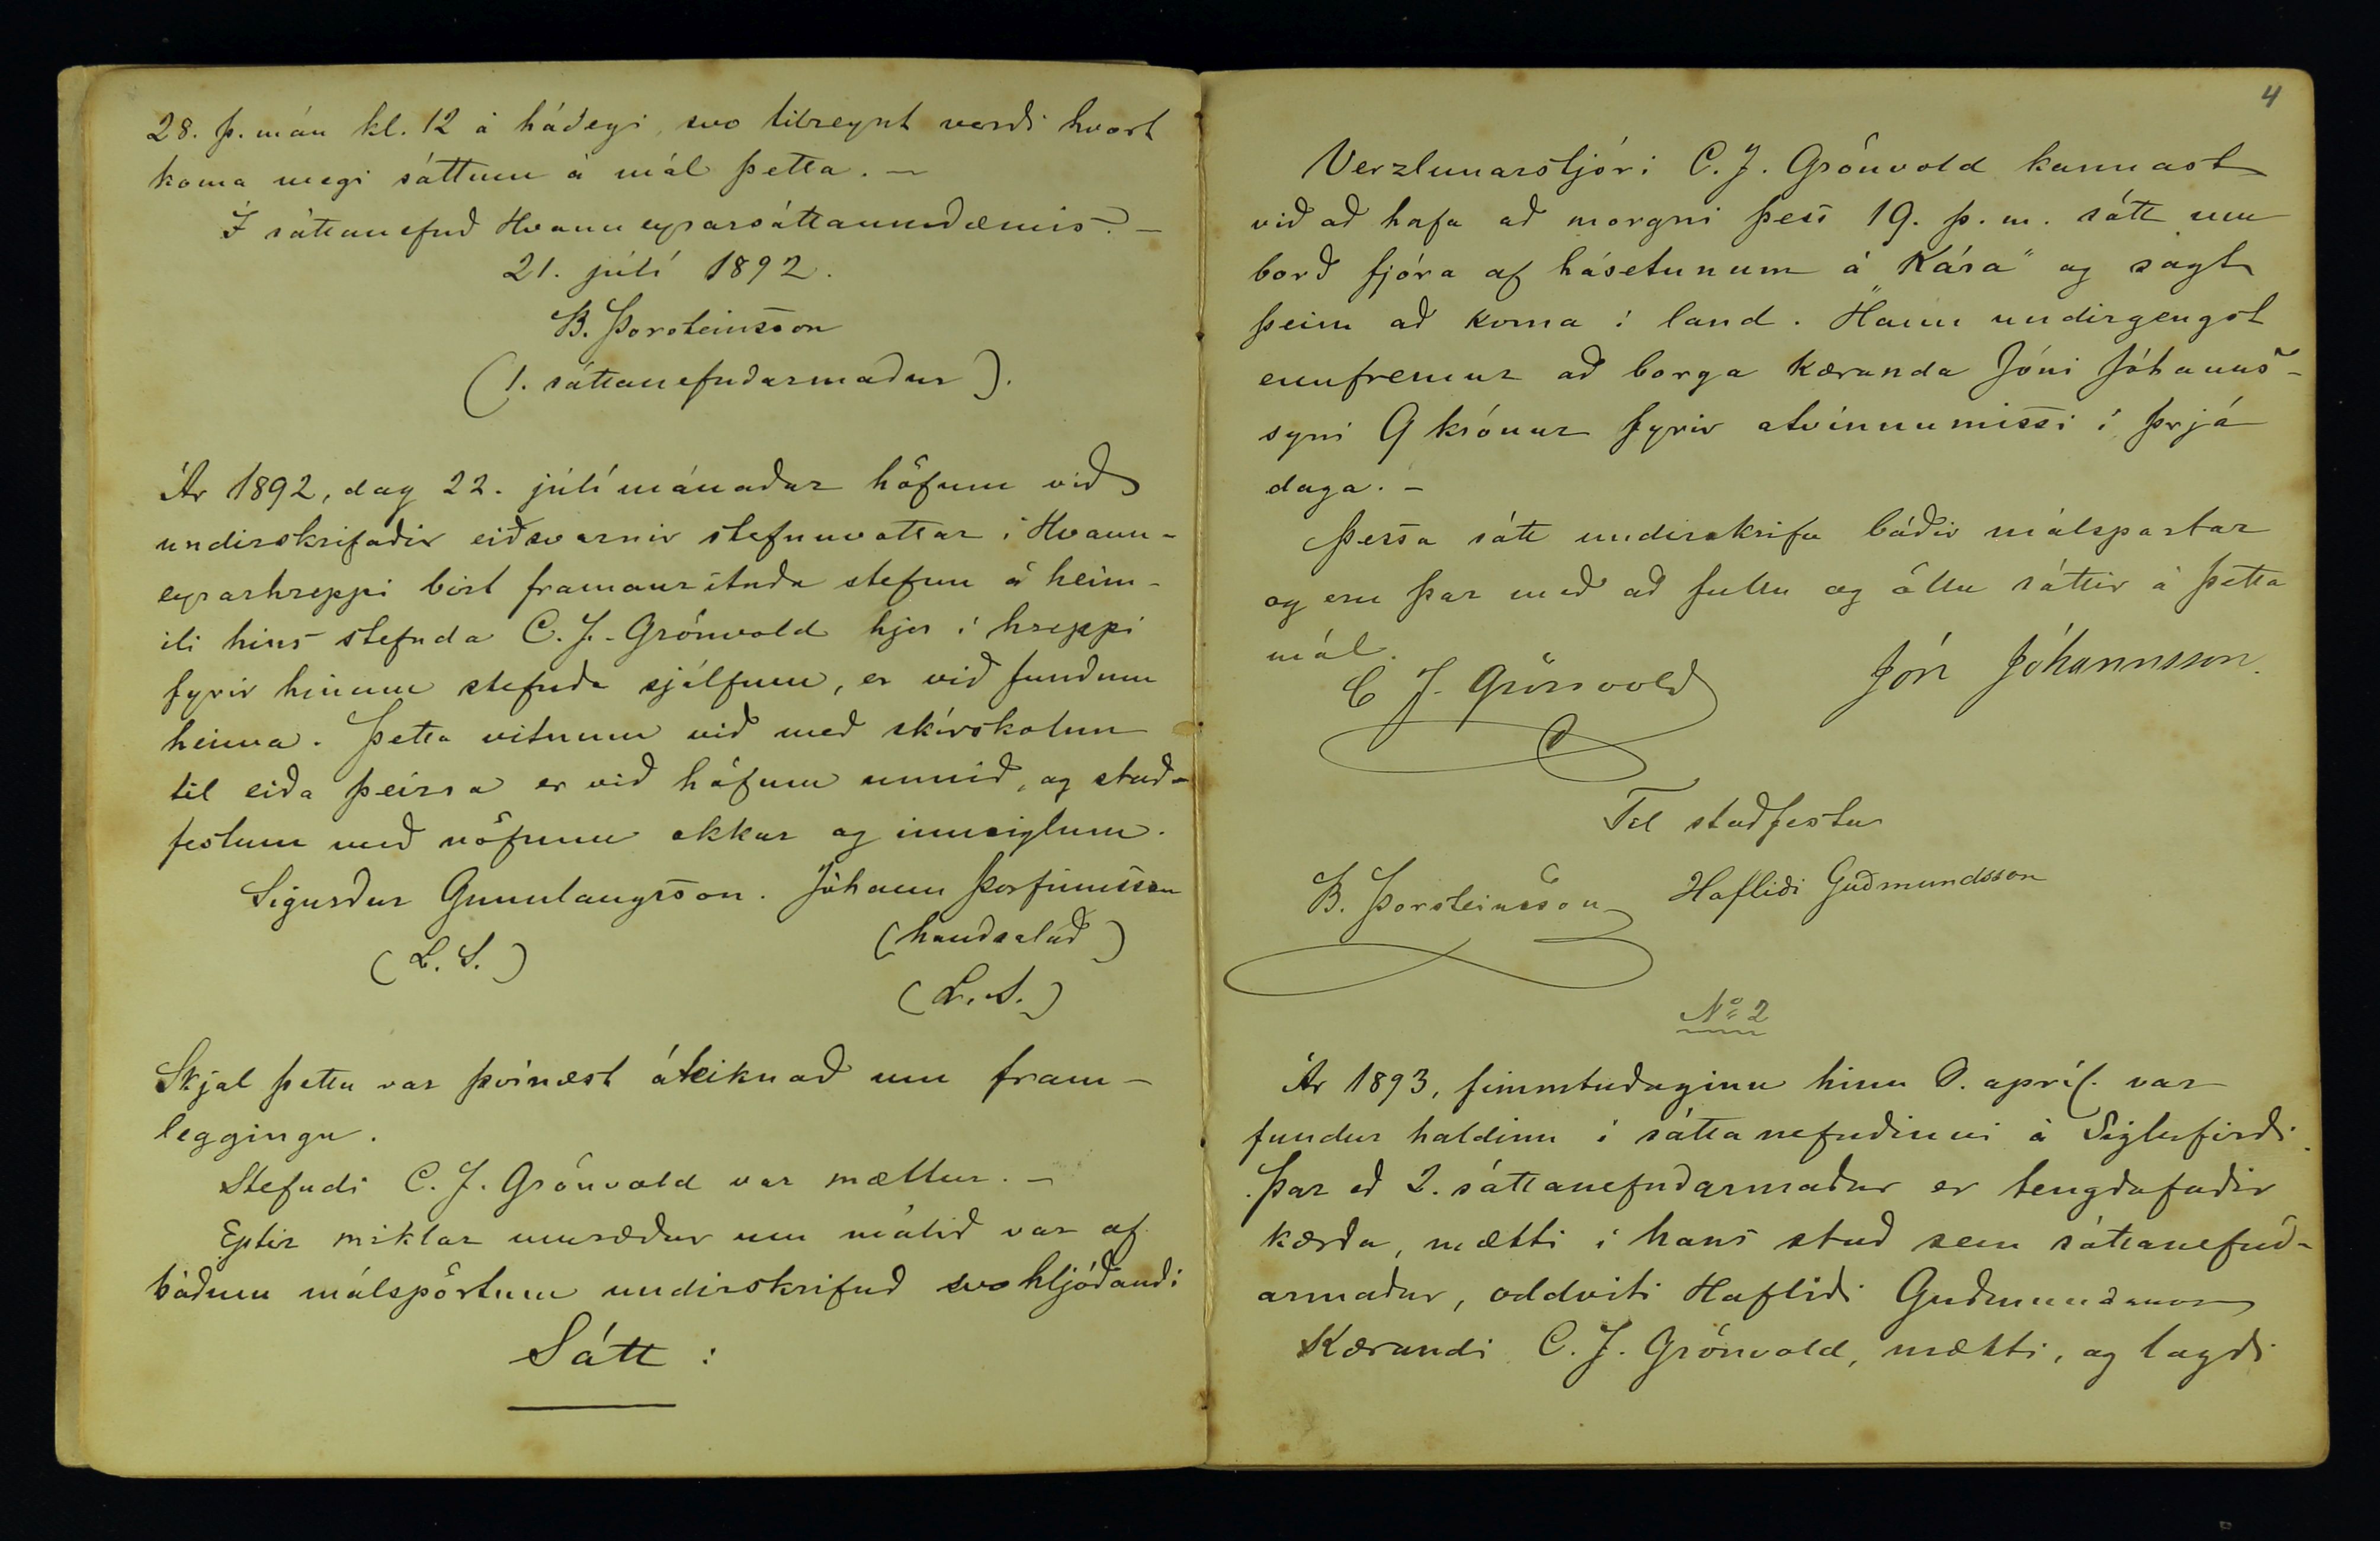 28. þ. mán kl. 12 á hádegi, svo tilreynt verði hvort
koma megi sáttum á mál þetta. —
Í sáttanefnd Hvanneyrarsáttaumdæmis. —
21. júlí 1892.
B. Þorsteinsson
(1. sáttanefndarmaður).
Ár 1892, dag 22. júlímánaðar höfum við
undirskrifaðir eiðsvarnir stefnuvottar í Hvann-
eyrarhreppi birt framanritaða stefnu á heim-
ili hins stefnda C. J. Grönvold hjer í hreppi
fyrir hinum stefnda sjálfum, er við fundum
heima. Þetta vitnum við með skírskotun
til eiða þeirra er við höfum unnið, og stað-
festum með nöfnum okkar og innsiglum.
Sigurður Gunnlaugsson. Jóhann Þorfinnsson
(handsalað)
(L. S.)
(L. S.)
Skjal þetta var þvínæst áteiknað um fram-
leggingu.
Stefndi C. J. Grönvold var mættur. —
Eptir miklar umræður um málið var af
báðum málspörtum undirskrifuð svo hljóðandi
Sátt :
4
Verzlunarstjóri C. J. Grönvold kannast
við að hafa að morgni þess 19. þ. m. sátt um
borð fjóra af hásetunum á „Kára“ og sagt
þeim að koma í land. Hann undirgengst
ennfremur að borga kæranda Jóni Jóhanns-
syni 9 krónur fyrir atvinnumissi í þrjá
daga. —
Þessa sátt undirskrifa báðir málspartar
og eru þar með að fullu og öllu sáttir á þetta
mál.
C J. Grönvold Jón Jóhannsson.
Til staðfestu
B. Þorsteinsson Hafliði Guðmundsson
No 2
Ár 1893, fimmtudaginn hinn apríl. var
fundur haldinn í sáttanefndinni á Siglufirði.
Þar eð 2. sáttanefndarmaður er tengdafaðir
kærða, mætti í hans stað sem sáttanefnd-
armaður, oddviti Hafliði Guðmundsson
Kærandi C. J. Grönvold, mætti, og lagði